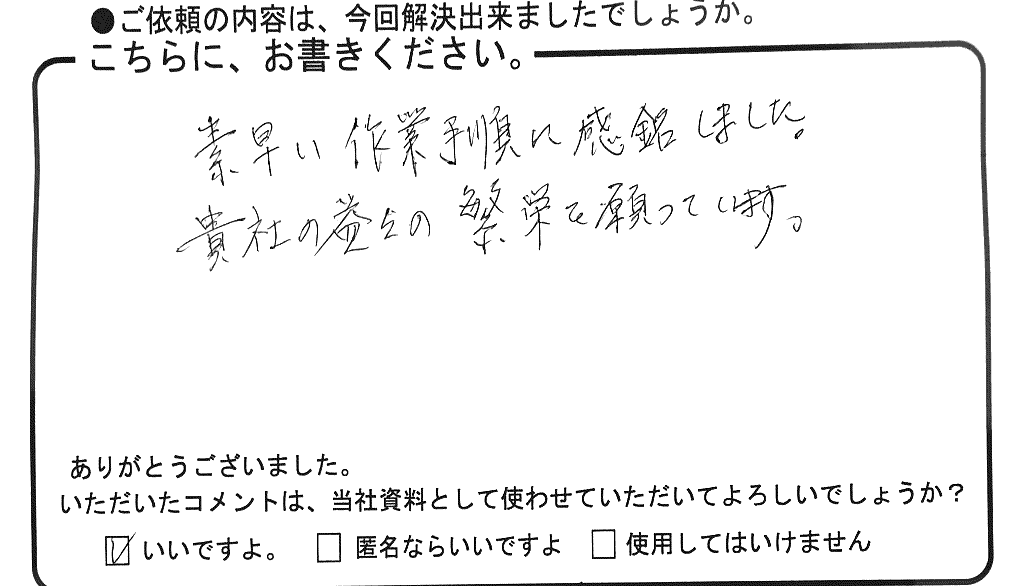 ●ご依頼の内容は、今回解決出来ましたでしょうか。
こちらに、お書きください。
素早い作業手順に感銘しました。
貴社の益々の繁栄を願っています。
ありがとうございました。
いただいたコメントは、当社資料として使わせていただいてよろしいでしょうか？
☑ いいですよ。 □ 匿名ならいいですよ □ 使用してはいけません